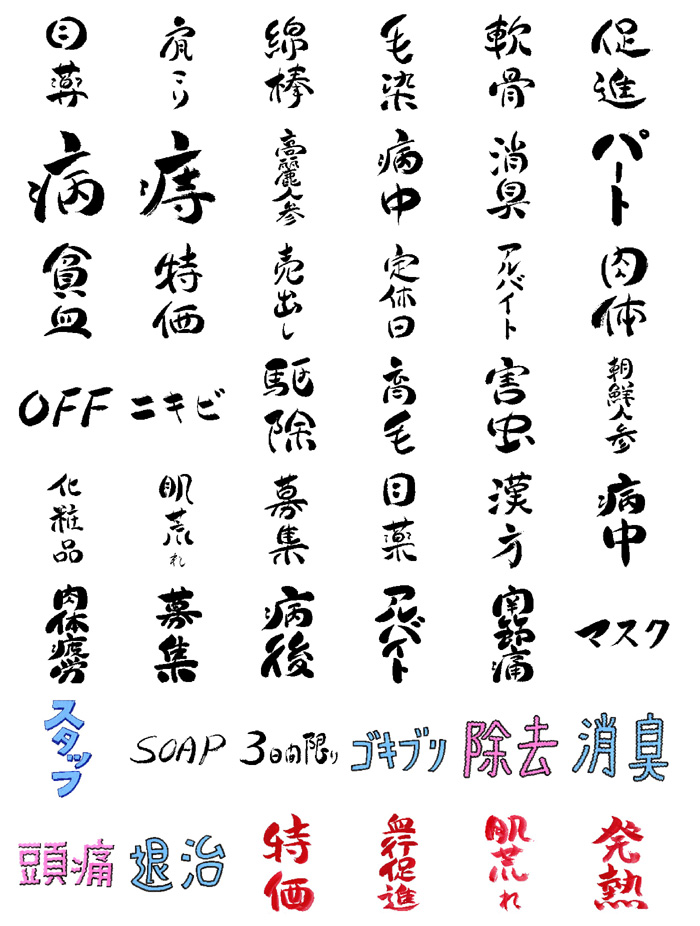 目薬
肩こり
綿棒
毛染
軟骨
促進
病
痔
高麗人参
病中
消臭
パート
貧血
特価
売出し
定休日
アルバイト
肉体
OFF
ニキビ
駆除
育毛
害虫
朝鮮人参
化粧品
肌荒れ
募集
目薬
漢方
病中
肉体疲労
募集
病後
アルバイト
関節痛
マスク
スタッフ
SOAP
3日間限り
ゴキブリ
除去
消臭
頭痛
退治
特価
血行促進
肌荒れ
発熱